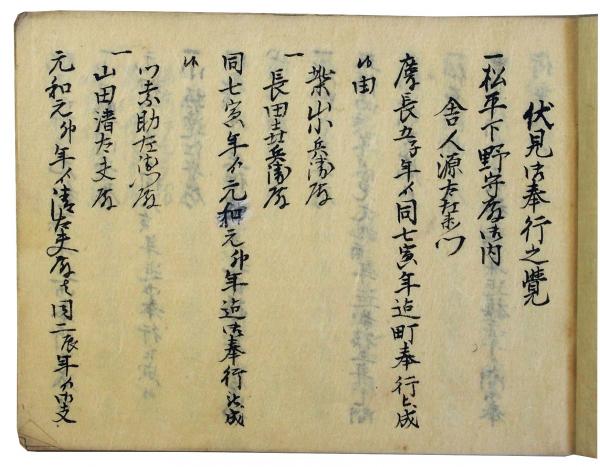 伏見御奉行之覺
一松平下野守殿御内
舎人源太左衛門
慶長五子年ゟ同七寅年迄町奉行被成
候由
柴山小兵衛殿
一
長田喜兵衛殿
同七寅年ゟ元和元卯年迄御奉行被成
候
門奈助左衛門殿
一
山田清太夫殿
元和元卯年ゟ清太夫殿も同二辰年ゟ